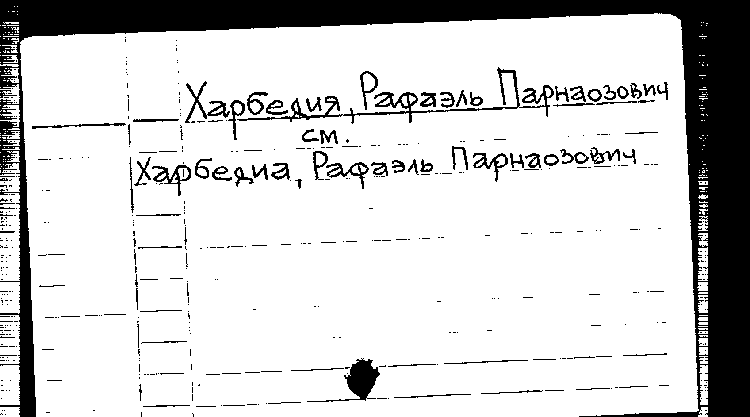 Харбедия, Рафаэль Парнаозович
см.
Харбедиа, Рафаэль Парнаозович